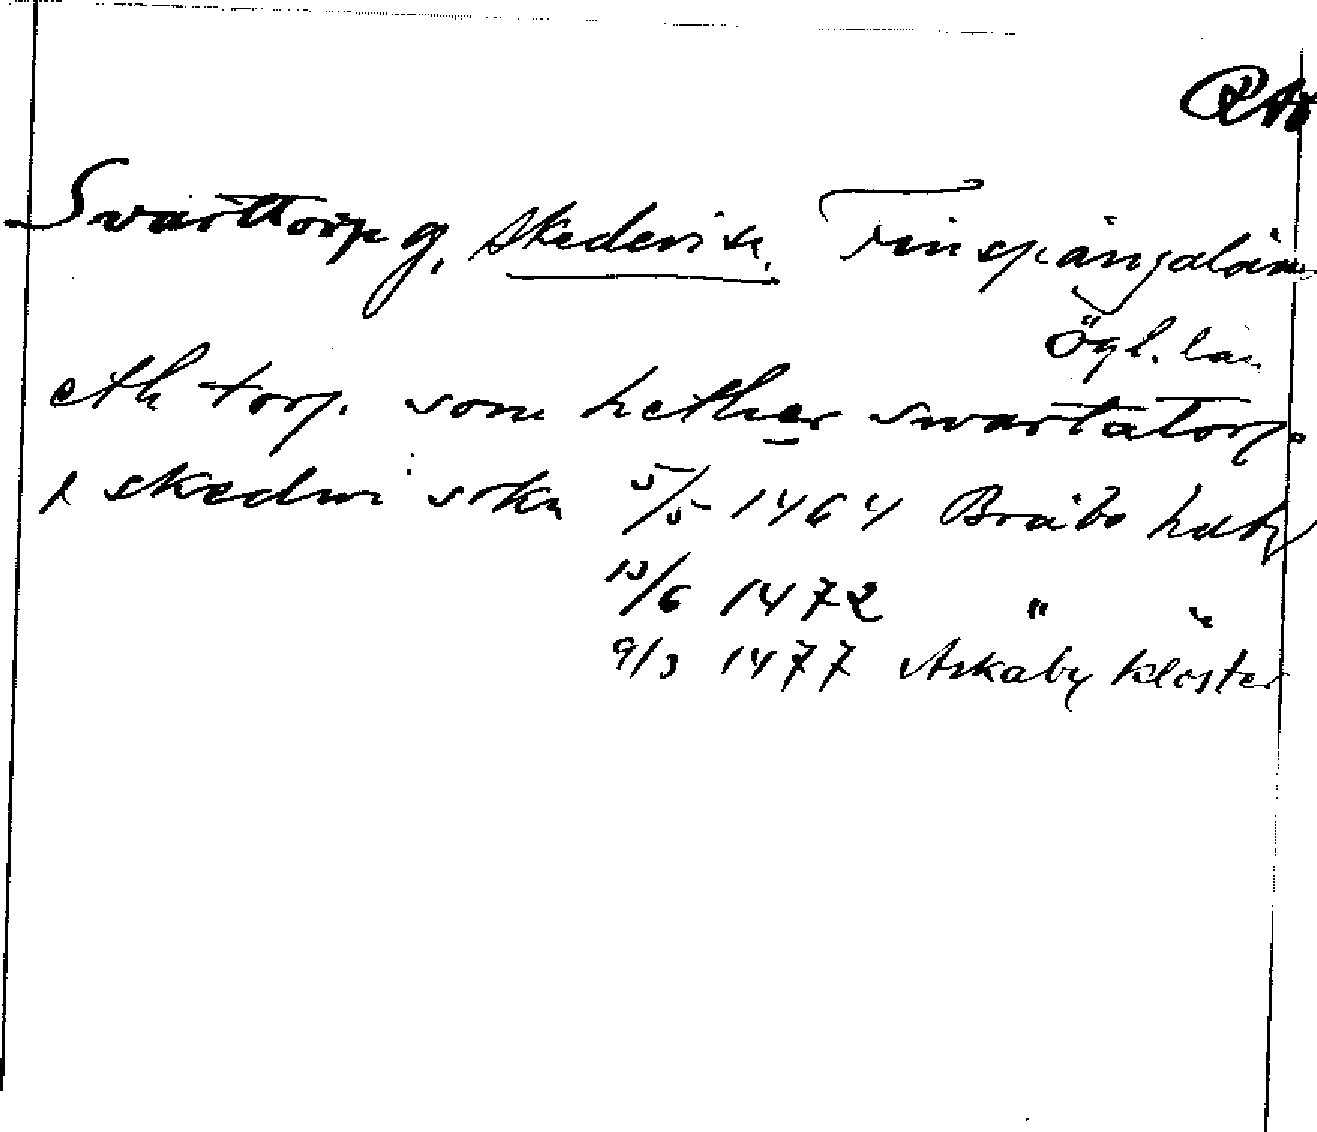 RA
Svarttorp g. Skedevi sn. Finspångalän
Ögl. län
eth torp som hether swartatorp
i skedwi sokn 5/5 1464 Bråbo hdb
10/6 1472 " "
9/3 1477 Askaby kloster